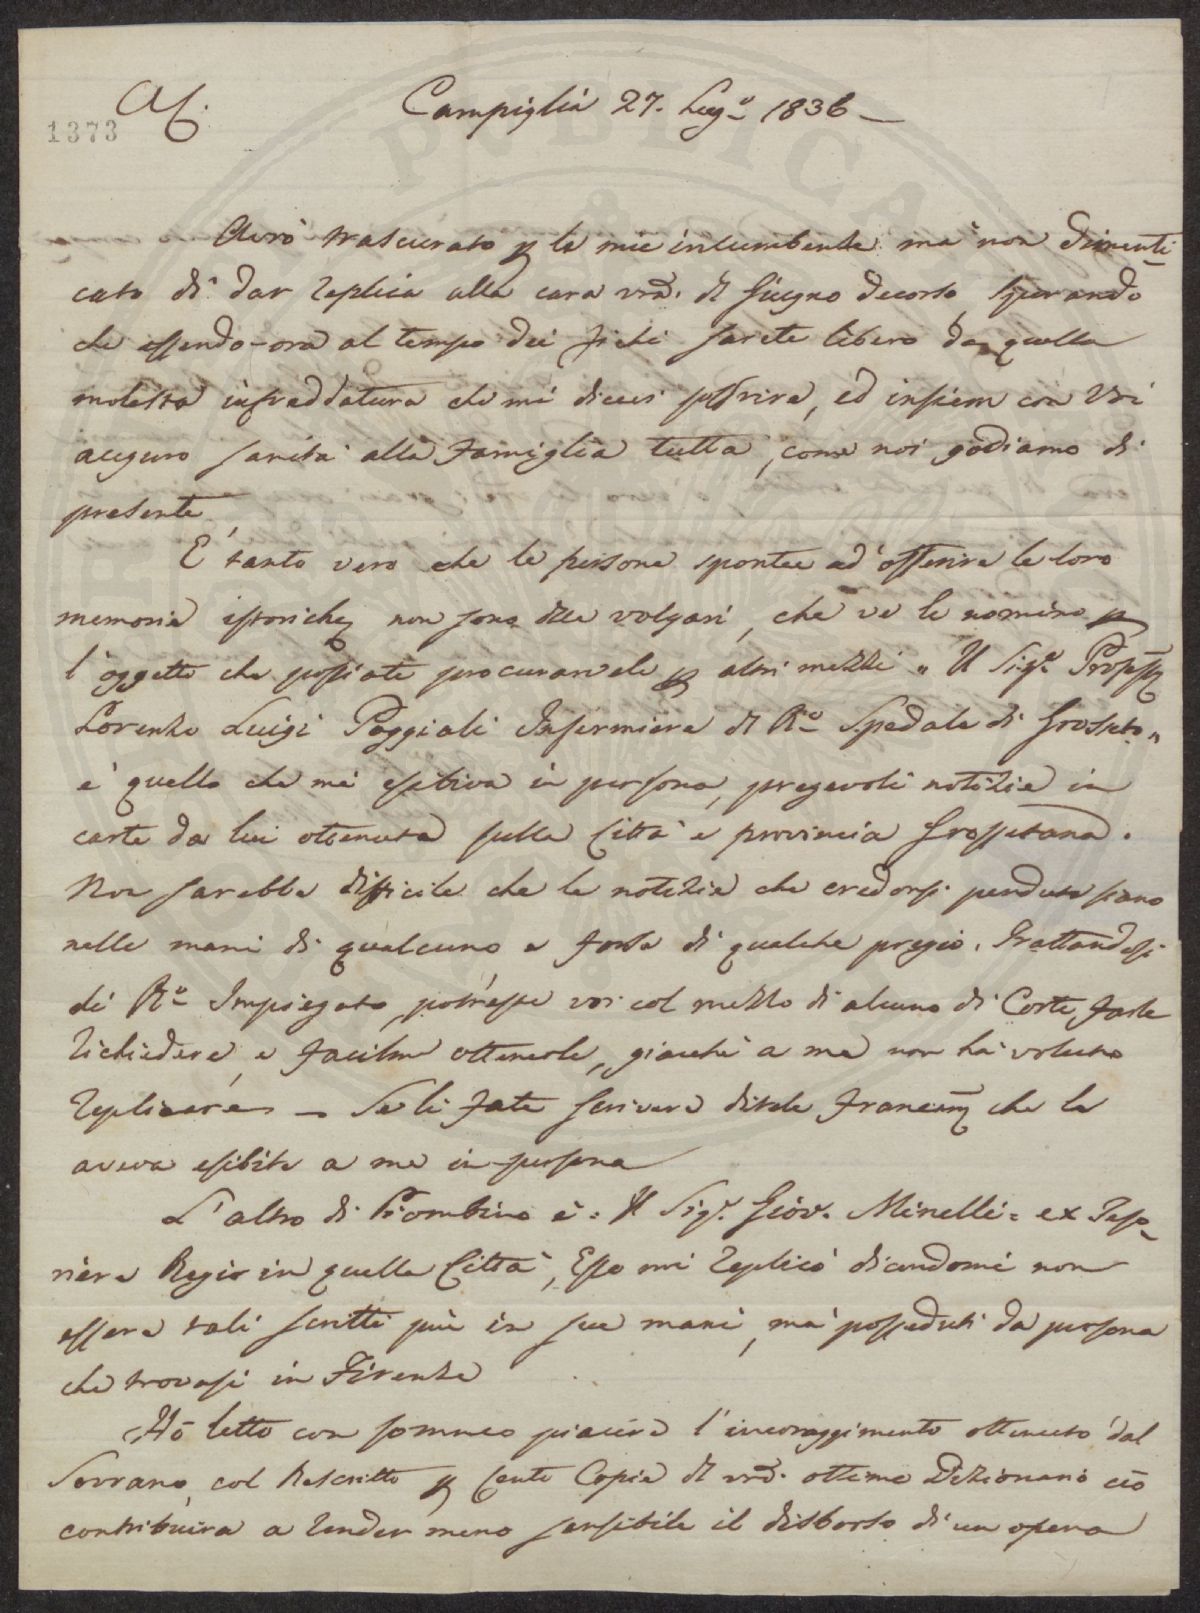 AC. Campiglia 27. Lug.o 1836
1373
Avrò trascurato p le mie incumbenze ma non dimenti
cato di dar replica alla cara vra. di Giugno decorso, sperando
che essendo ora al tempo dei fichi sarete libero da quella
molesta infreddatura che mi dicevi soffrire, ed insiem con Voi
auguro sanità alla Famiglia tutta, come noi godiamo di
presente
E' tanto vero che le persone spontee ad offerire le loro
memorie istoriche non sono delle volgari, che ve le nomino p
l'oggetto che possiate procurarvele p altri mezzi „ Il Sig.e Profess
Lorenzo Luigi Poggiali Infermiere di R.o Spedale di Grosseto „
è quello che mi esibiva in persona, pregevoli notizie in
carte da lui ottenute sulla Città e provincia Grossetana.
Non sarebbe difficile che le notizie che credonsi perdute siano
nelle mani di qualcuno e forse di qualche pregio. Trattandosi
di R.o Impiegato, potreste voi col mezzo di alcuno di Corte, farle
richiedere, e facilm ottenerle, giacchè a me non ha voluto
replicare — Se li fate scrivere ditele francam che le
aveva esibite a me in persona
L'altro di Piombino è = Il Sig.r Giov. Minelli = ex Teso
riere Regio in quella Città, Esso mi replicò dicendomi non
essere tali scritti più in sue mani, ma posseduti da persona
che trovasi in Firenze
Hò letto con sommo piacere l'incoraggimento ottenuto dal
Sovrano, col Rescritto p Cento Copie di vro. ottimo Dizionario ciò
contribuirà a render meno sensibile il disborso di un opera